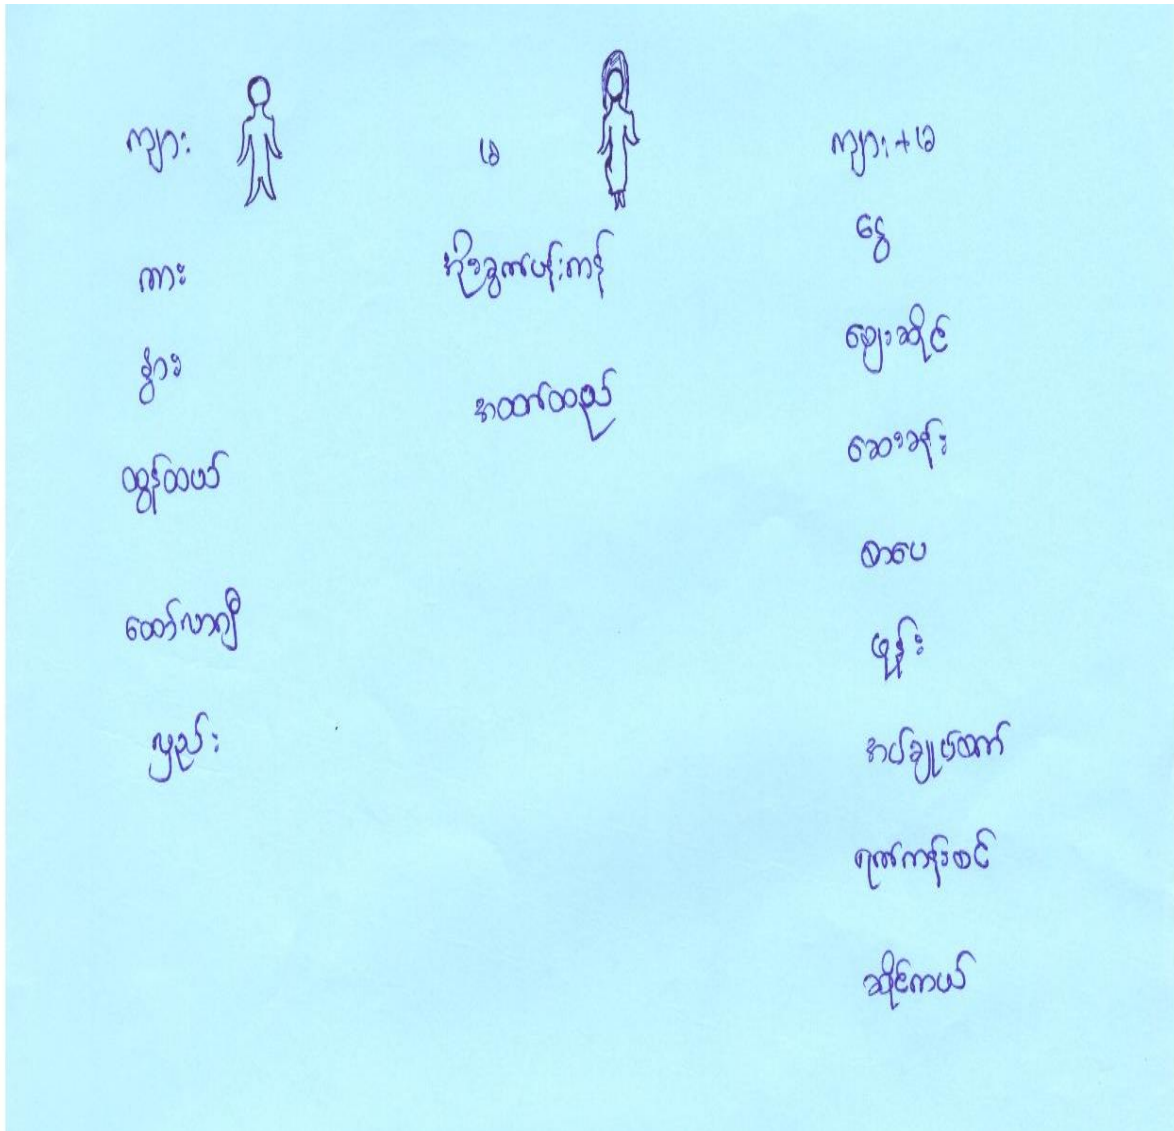 ကျား
ကား
နွား
ထွန်ထယ်
ထော်လာဂျီ
လှည်း
မ
အိုးခွက်ပန်းကန်
အထက်ထည်
ကျား+မ
ငွေ
ဈေးဆိုင်
ဆေးခန်း
စာပေ
ဖုန်း
အပ်ချုပ်စက်
ရက်ကန်းစင်
ဆိုင်ကယ်